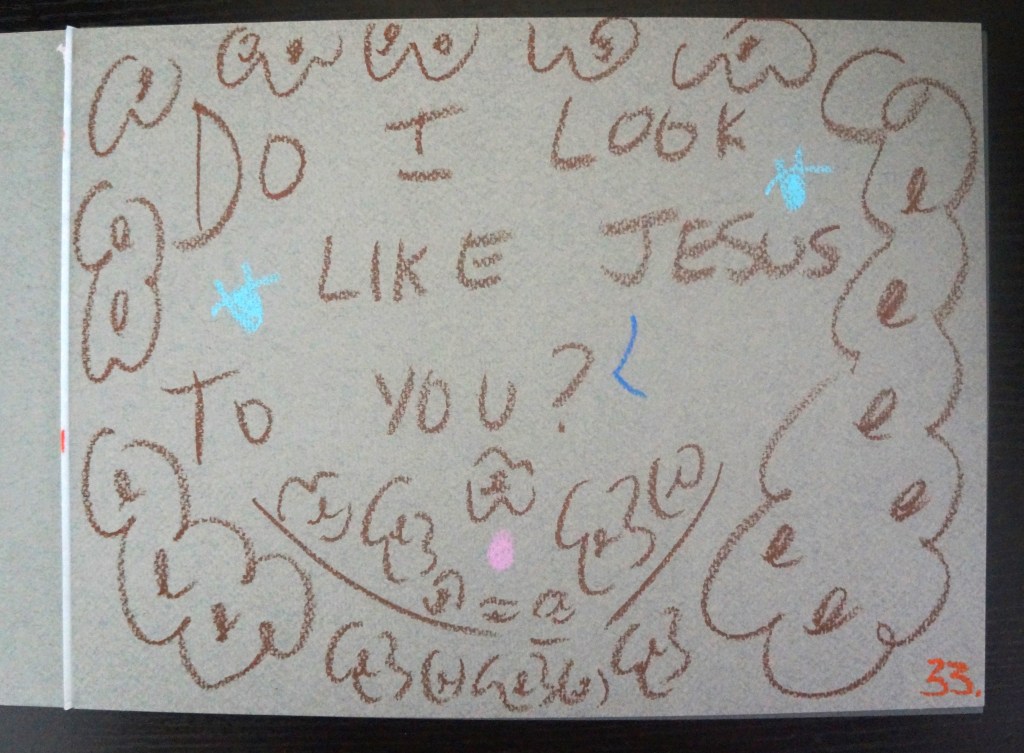 DO I LOOK
LIKE JESUS
TO YOU?
33.